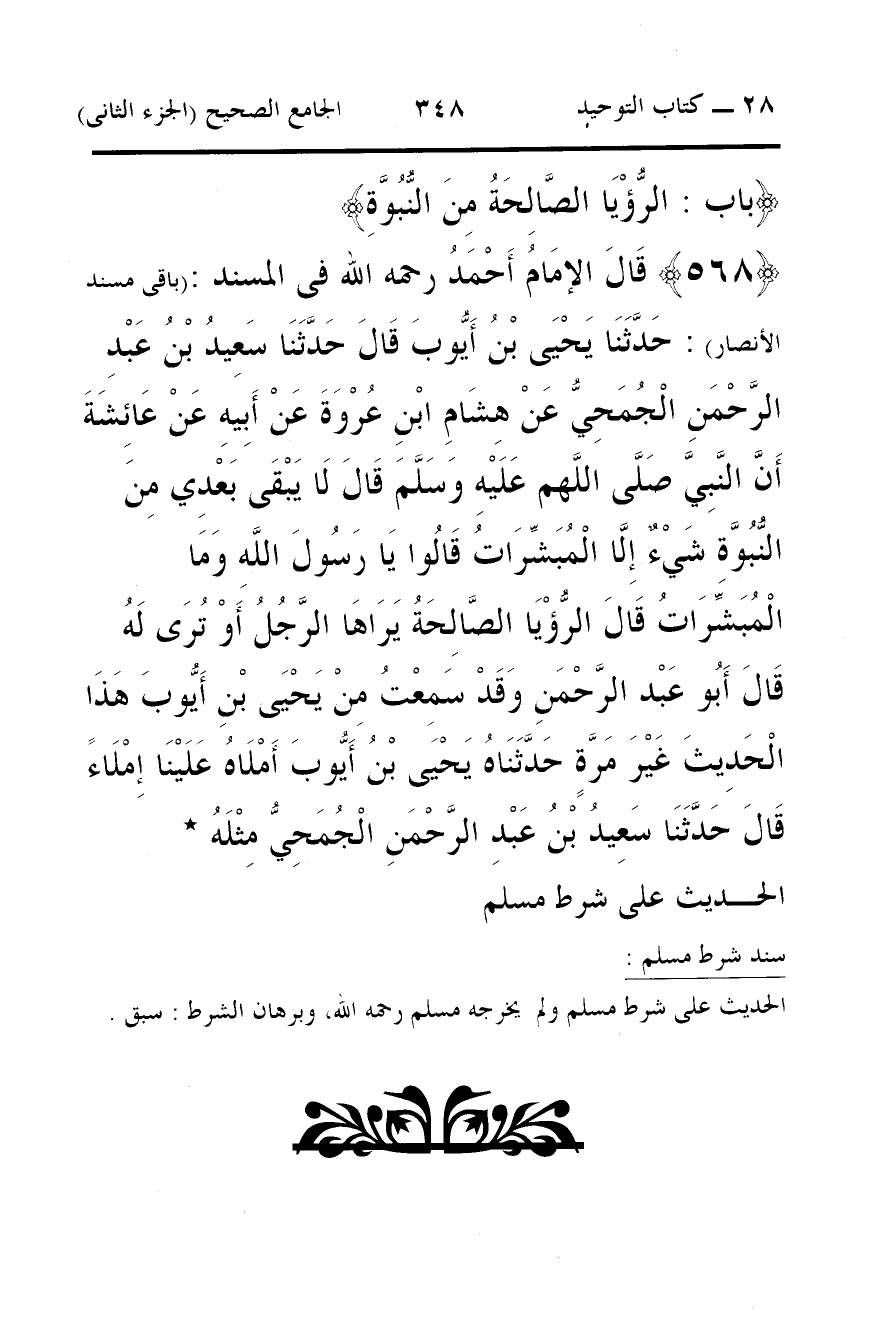 ٢٨ ــ كتاب التوحيد ٣٤٨ الجامع الصحيح (الجزء الثانى)
﴿باب : الرُّؤْيَا الصَّالِحَةُ مِنَ النُّبُوَّةِ﴾
﴿٥٦٨﴾ قَالَ الإِمَامُ أَحْمَدُ رحمه الله فى المسند :(باقى مسند
الأنصار) : حَدَّثَنَا يَحْيَى بْنُ أَيُّوبَ قَالَ حَدَّثَنَا سَعِيدُ بْنُ عَبْدِ
الرَّحْمَنِ الْجُمَحِيُّ عَنْ هِشَامِ ابْنِ عُرْوَةَ عَنْ أَبِيهِ عَنْ عَائِشَةَ
أَنَّ النَّبِيَّ صَلَّى اللَّهم عَلَيْهِ وَسَلَّمَ قَالَ لَا يَبْقَى بَعْدِي مِنَ
النُّبُوَّةِ شَيْءٌ إِلَّا الْمُبَشِّرَاتُ قَالُوا يَا رَسُولَ اللَّهِ وَمَا
الْمُبَشِّرَاتُ قَالَ الرُّؤْيَا الصَّالِحَةُ يَرَاهَا الرَّجُلُ أَوْ تُرَى لَهُ
قَالَ أَبُو عَبْد الرَّحْمَنِ وَقَدْ سَمِعْتُ مِنْ يَحْيَى بْنِ أَيُّوبَ هَذَا
الْحَدِيثَ غَيْرَ مَرَّةٍ حَدَّثَنَاهُ يَحْيَى بْنُ أَيُّوبَ أَمْلَاهُ عَلَيْنَا إِمْلَاءً
قَالَ حَدَّثَنَا سَعِيدُ بْنُ عَبْدِ الرَّحْمَنِ الْجُمَحِيُّ مِثْلَهُ *
الحـــديث على شرط مسلم
سند شرط مسلم :
الحديث على شرط مسلم ولم يخرجه مسلم رحمه الله، وبرهان الشرط : سبق .